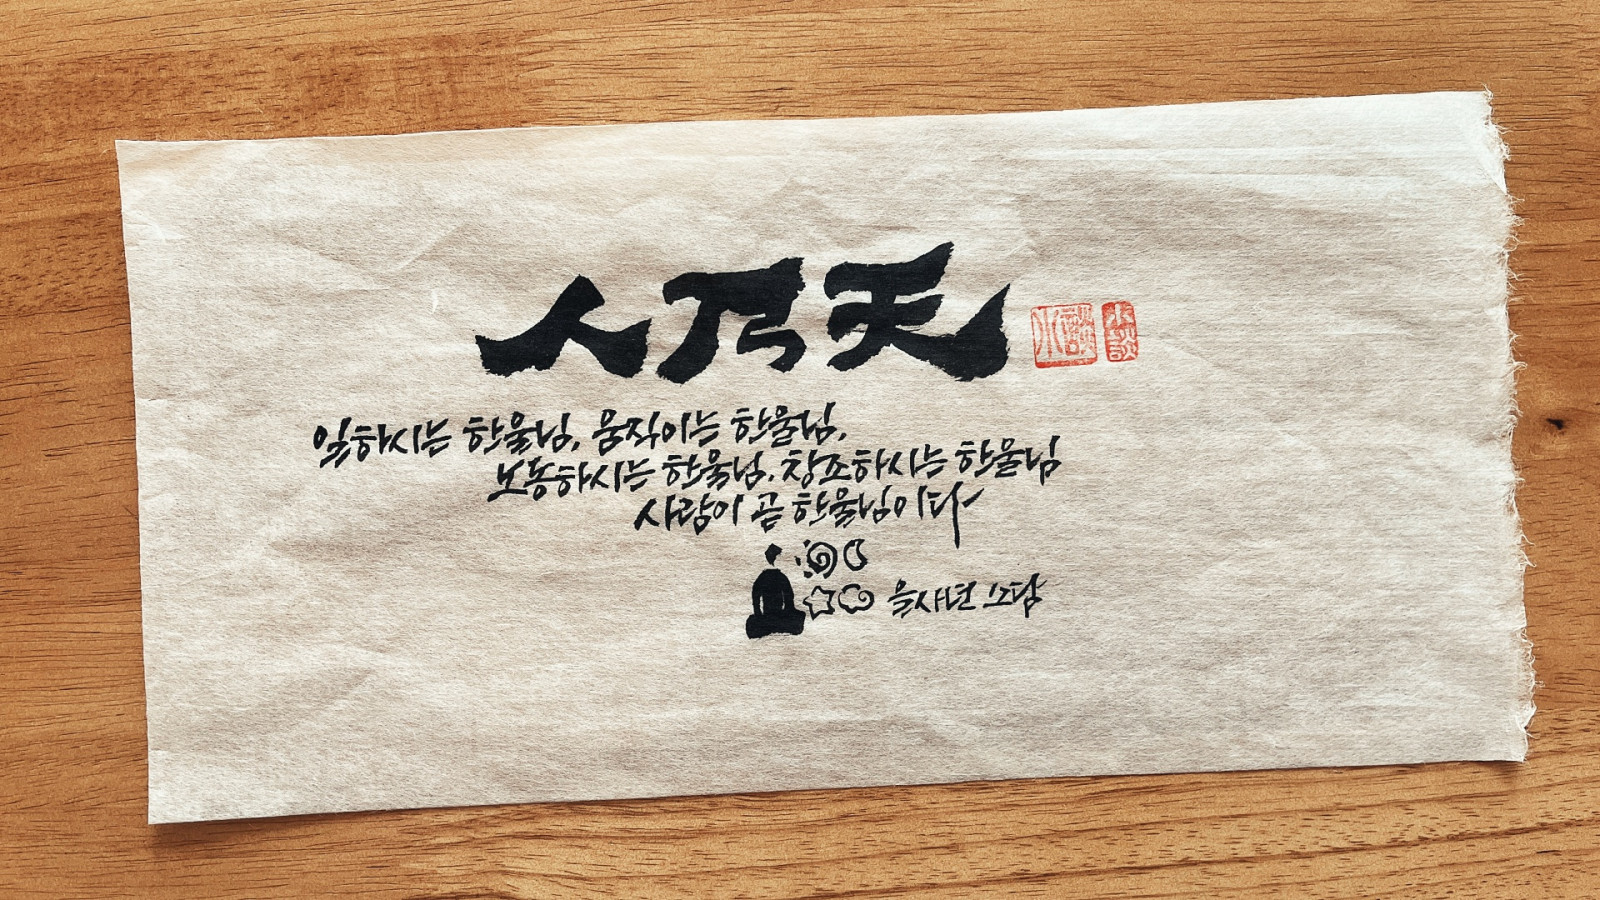 人乃天
일하시는 한울님, 움직이는 한울님,
노동하시는 한울님, 창조하시는 한울님
사람이 곧 한울님이니
을사년 소담